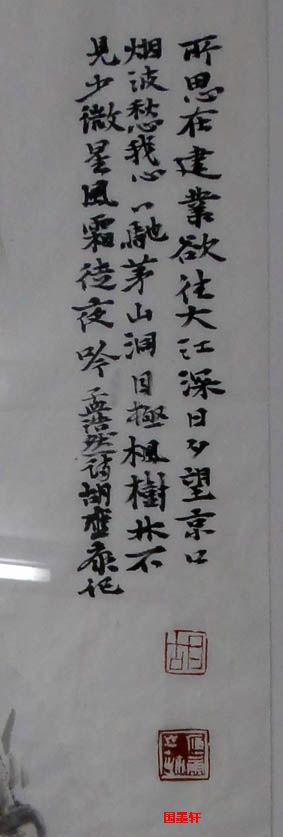 所思在建業欲往大江深日夕望京口
烟波愁我心心馳茅山洞目極楓樹林不
見少微星風霜徒夜吟 孟浩然詩胡
国墨轩